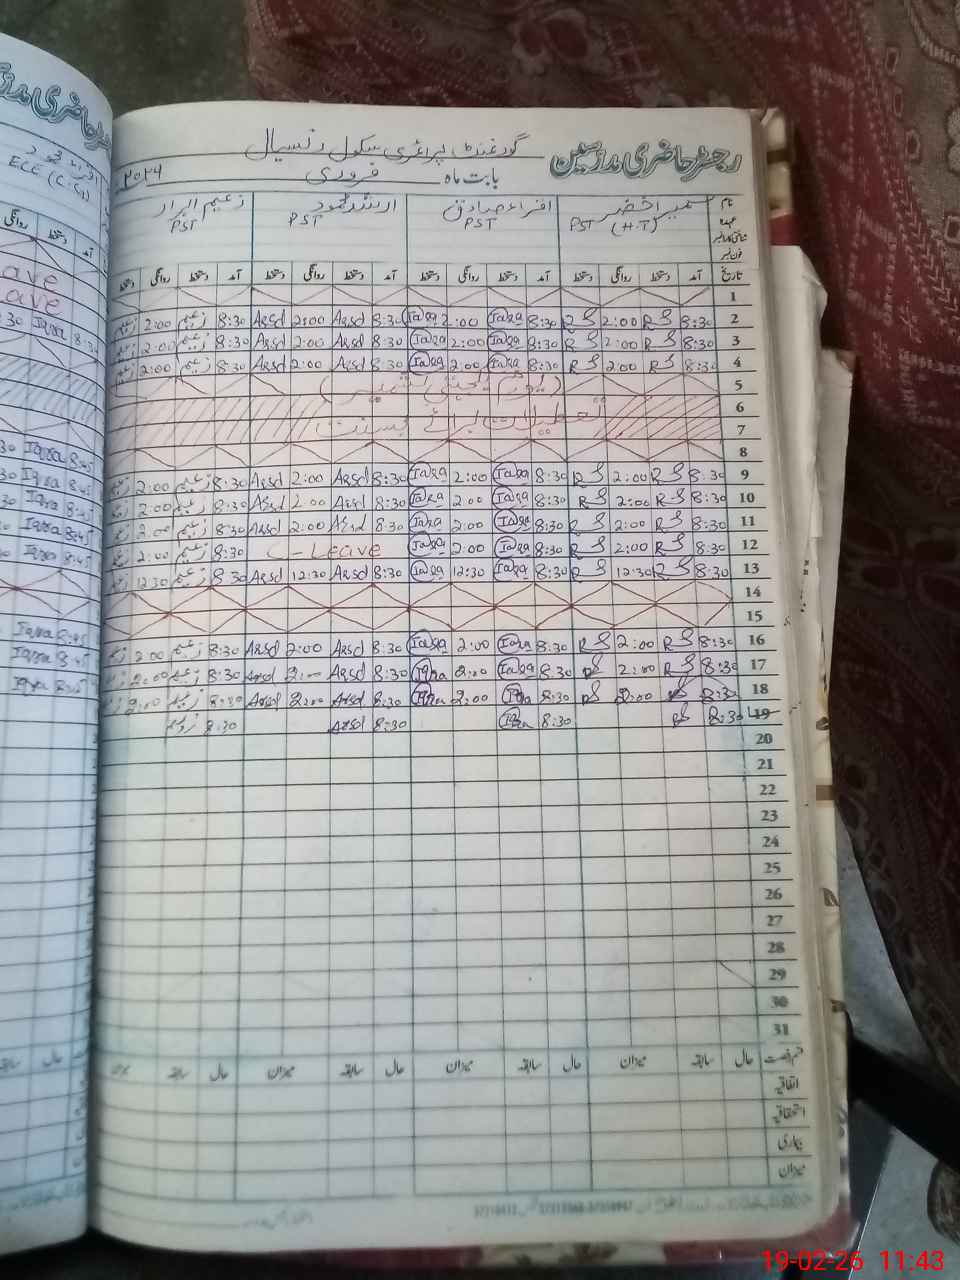 رجسٹر حاضری مدرسین گورنمنٹ پرائمری سکول
بابت ماہ فروری
نام سمیرا خضر اقراء صادق ارشد محمود زعیم ابرار
عہدہ PST (H.T) PST PST PST
شناختی کارڈ نمبر
فون نمبر
تاریخ آمد دستخط روانگی دستخط آمد دستخط روانگی دستخط آمد دستخط روانگی دستخط آمد دستخط روانگی دستخط
1
2 8:30 RS 2:00 RS 8:30 Iqra 2:00 Iqra 8:30 Arsd 2:00 Arsd 8:30 زعیم 2:00 زعیم
3 8:30 RS 2:00 RS 8:30 Iqra 2:00 Iqra 8:30 Arsd 2:00 Arsd 8:30 زعیم 2:00 زعیم
4 8:30 RS 2:00 RS 8:30 Iqra 2:00 Iqra 8:30 Arsd 2:00 Arsd 8:30 زعیم 2:00 زعیم
5 (یوم یکجہتی کشمیر)
6 تعطیلات برائے بسنت
7
8
9 8:30 RS 2:00 RS 8:30 Iqra 2:00 Iqra 8:30 Arsd 2:00 Arsd 8:30 زعیم 2:00 زعیم
10 8:30 RS 2:00 RS 8:30 Iqra 2:00 Iqra 8:30 Arsd 2:00 Arsd 8:30 زعیم 2:00 زعیم
11 8:30 RS 2:00 RS 8:30 Iqra 2:00 Iqra 8:30 Arsd 2:00 Arsd 8:30 زعیم 2:00 زعیم
12 8:30 RS 2:00 RS 8:30 Iqra 2:00 Iqra C-Leave 8:30 زعیم 2:00 زعیم
13 8:30 RS 12:30 RS 8:30 Iqra 12:30 Iqra 8:30 Arsd 12:30 Arsd 8:30 زعیم 12:30 زعیم
14
15
16 8:30 RS 2:00 RS 8:30 Iqra 2:00 Iqra 8:30 Arsd 2:00 Arsd 8:30 زعیم 2:00 زعیم
17 8:30 RS 2:00 RS 8:30 Iqra 2:00 Iqra 8:30 Arsd 2:00 Arsd 8:30 زعیم 2:00 زعیم
18 8:30 RS 2:00 RS 8:30 Iqra 2:00 Iqra 8:30 Arsd 2:00 Arsd 8:30 زعیم 2:00 زعیم
19 8:30 RS 8:30 Iqra 8:30 Arsd 8:30 زعیم
20
21
22
23
24
25
26
27
28
29
30
31
قسم رخصت حال سابقہ میزان حال سابقہ میزان حال سابقہ میزان حال سابقہ میزان
اتفاقیہ
استحقاقیہ
بیماری
میزان
رجسٹر حاضری
ECE
روانگی دستخط آمد
ave
ave
30 Iqra 8:30
30 Iqra 8:45
30 Iqra 8:45
30 Iqra 8:45
Iqra 8:45
Iqra 8:45
Iqra 8:45
Iqra 8:45
Iqra 8:45
سابقہ حال
19-02-26 11:43